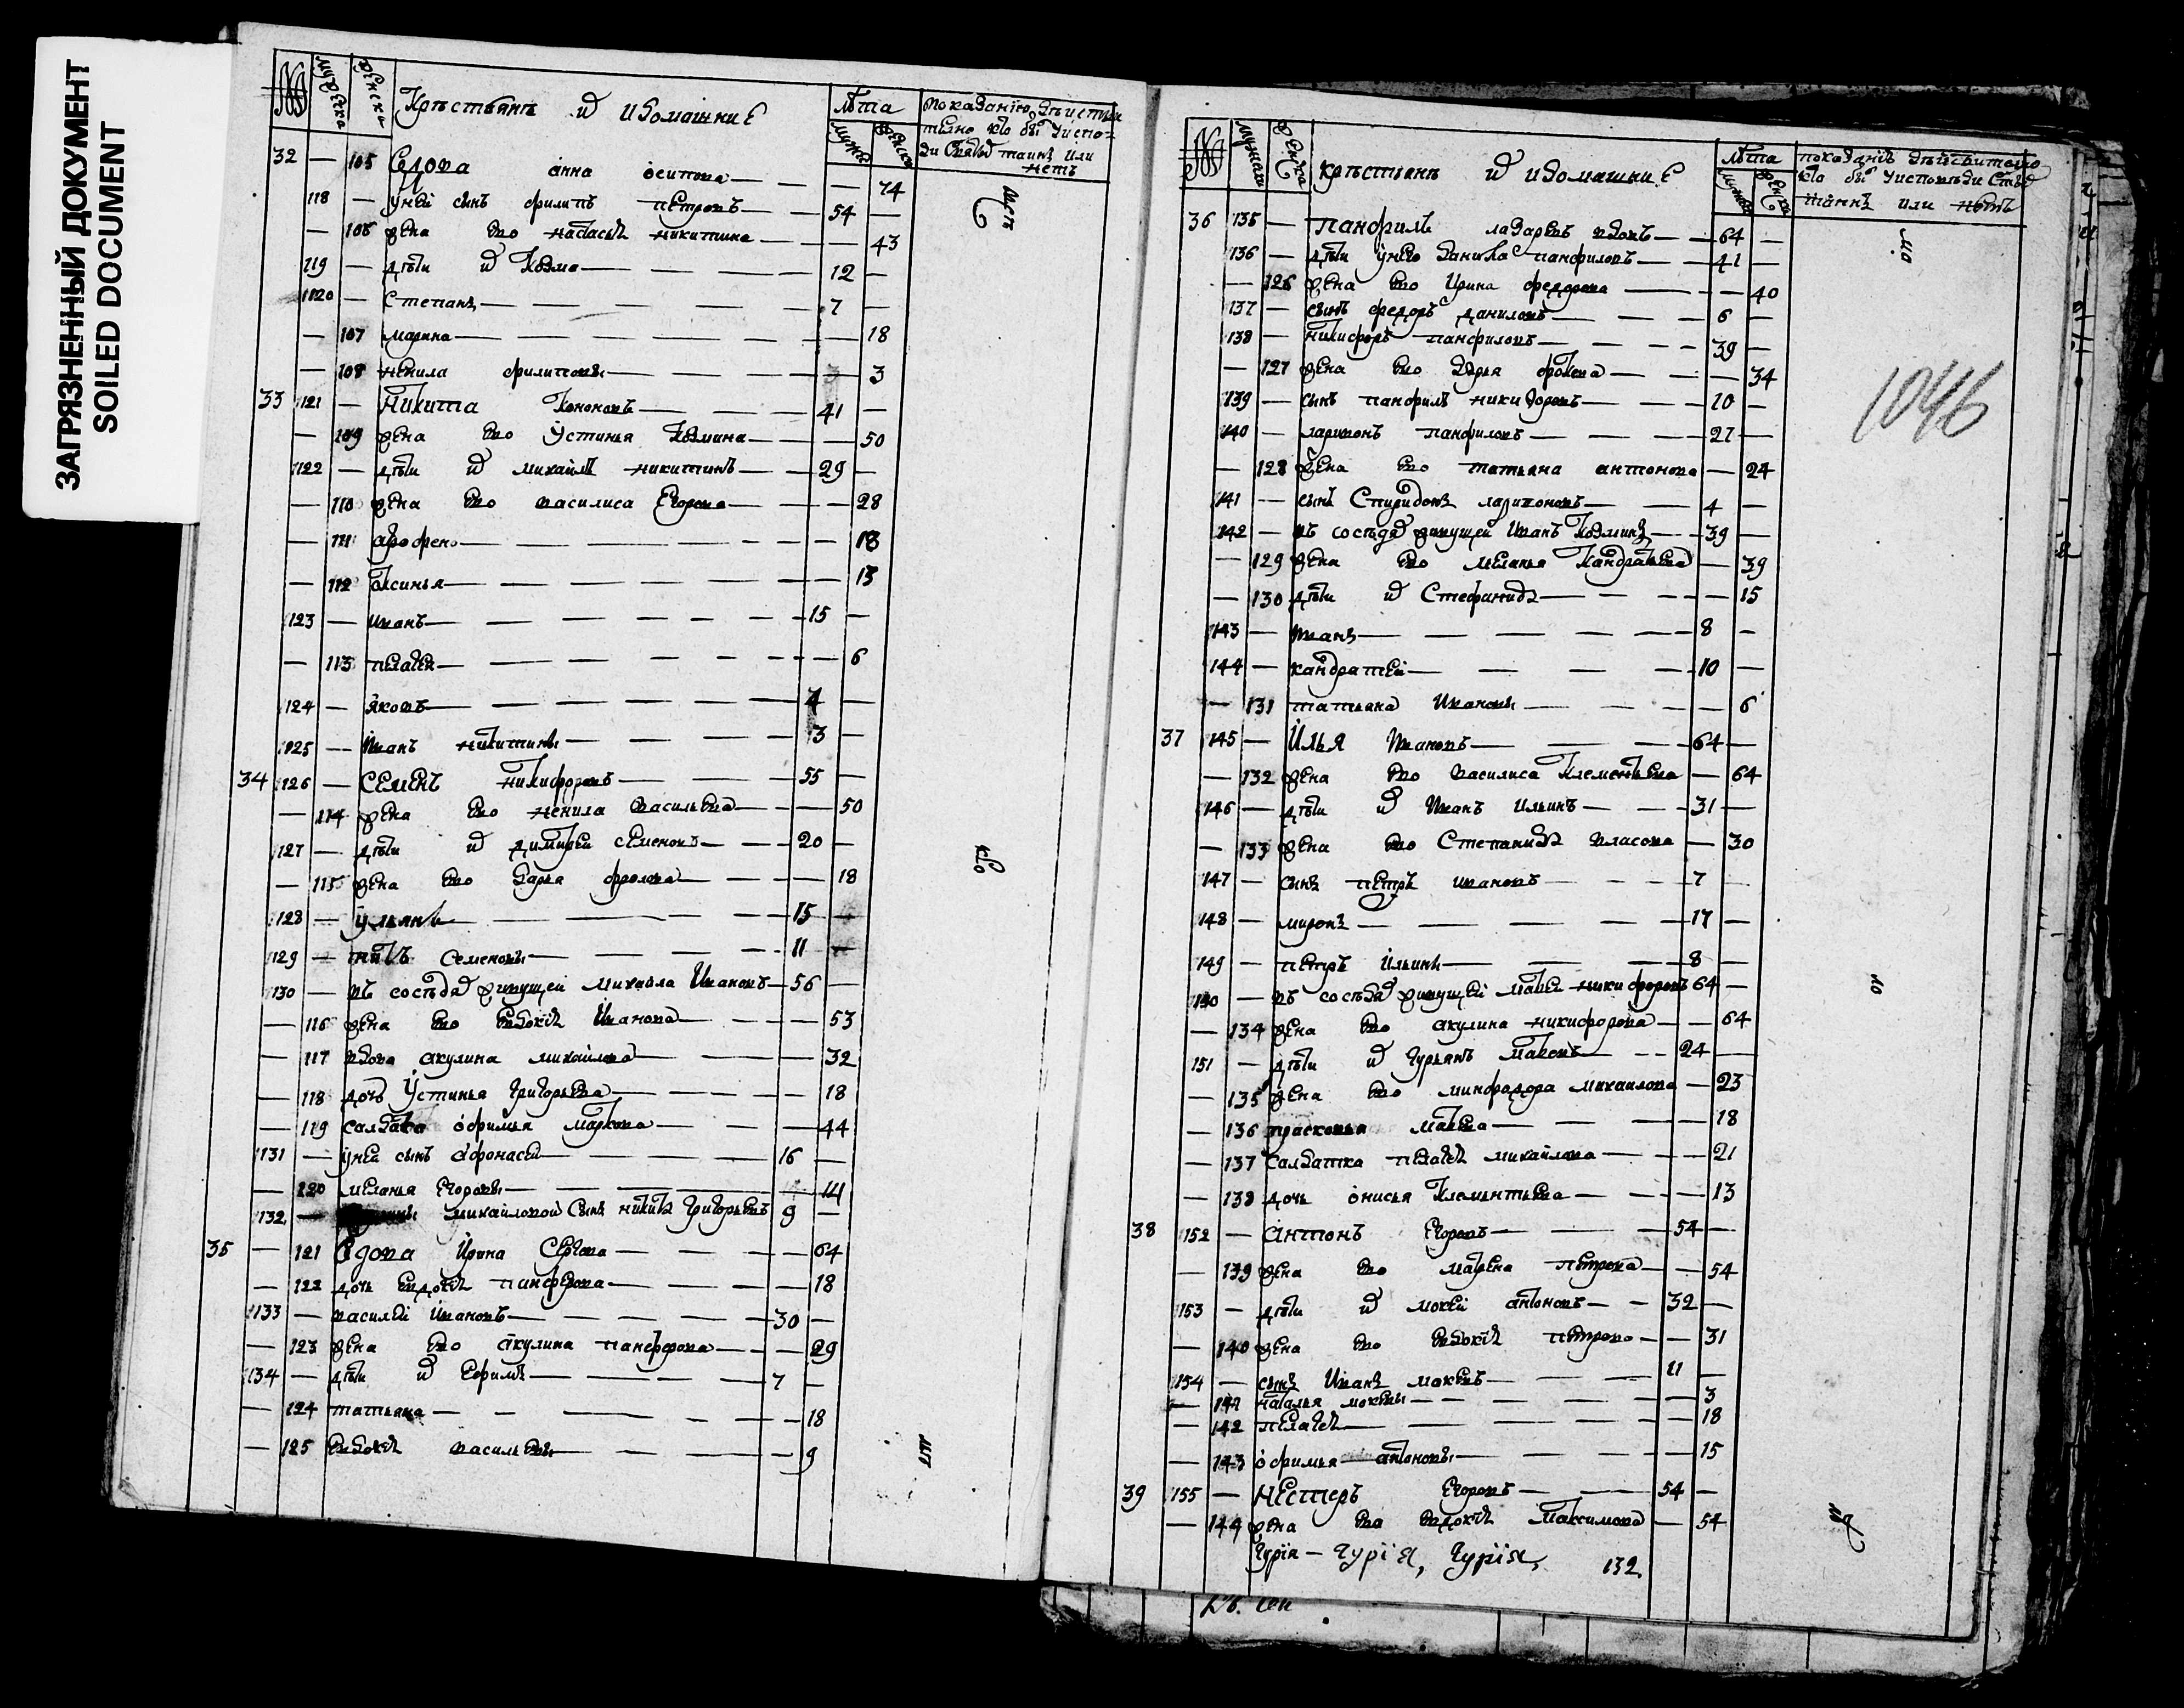 ЗАГРЯЗНЕННЫЙ ДОКУМЕНТ
SOILED DOCUMENT
№ мужска женска Крестьяне и идомашние лѣта мужска женска
32 — 105 Вдова анна осипова — — 74
118 — унеи сынъ филипъ петровъ — 54 —
— 106 жена его настасья никитина — — 43
119 — дѣти их козма — 12 —
120 — степанъ — 7 —
— 107 марина — — 18
— 108 ненила филиповы — 3
33 121 — Никита кононовъ — 41 —
— 109 жена его устинья козмина — — 50
122 — дѣти их михайлъ никитинъ — 29 —
— 110 жена его василиса егорова — — 28
— 111 аграфена — — 18
— 112 аксинья — — 13
123 — иванъ — 15 —
— 113 пелагея — — 6
124 — яковъ — 4 —
125 — иванъ никитины — 3 —
34 126 — Семенъ никифоровъ — 55 —
— 114 жена его ненила васильева — — 50
127 — дѣти их димитрей семеновъ — 20 —
— 115 жена его дарья фролова — — 18
128 — ульянъ — 15 —
129 — титъ семеновы — 11 —
130 — въ сосѣдях живущей михайла ивановъ — 56 —
— 116 жена его евдокія иванова — — 53
— 117 вдова акулина михайлова — — 32
— 118 дочь устинья григорьева — — 18
— 119 салдатка офимья маркова — — 44
131 — унеи сынъ афонасей — 16 —
— 120 меланья егоровы — 14
132 — михайловой сынъ никита григорьевъ 9 —
35 — 121 Вдова ирина сергева — — 64
— 122 дочь евдокія панферова — — 18
133 — василей ивановъ — 30 —
— 123 жена его акулина панферова — — 29
134 — дѣти их ефимъ — 7 —
— 124 татьяна — — 18
— 125 евдокія васильевы — — 9
№ мужска женска крестьяне и идомашние лѣта мужска женска
36 135 — Панфилъ лазаревъ вдовъ — 64 —
136 — дѣти унего данила панфиловъ — 41 —
— 126 жена его ирина федорова — — 40
137 — сынъ федоръ даниловъ — 6 —
138 — никифоръ панфиловъ — 39 —
— 127 жена его дарья фокина — — 34
139 — сынъ панфилъ никифоровъ — 10 —
140 — ларивонъ панфиловъ — 27 —
— 128 жена его татьяна антонова — 24
141 — сынъ спиридонъ ларивоновъ — 4 —
142 — въ сосѣдях живущей иванъ козминъ — 39 —
— 129 жена его меланья кандратьева — 39
— 130 дѣти их стефанида — — 15
143 — иванъ — 8 —
144 — кандратей — 10 —
— 131 татьяна ивановы — — 6
37 145 — Илья ивановъ — 64 —
— 132 жена его василиса клементьева — 64
146 — дѣти их иванъ ильинъ — 31 —
— 133 жена его степанида власова — 30
147 — сынъ петръ ивановъ — 7 —
148 — миронъ — 17 —
149 — петръ ильины — 8 —
150 — въ сосѣдях живущей матвей никифоровъ 64 —
— 134 жена его акулина никифорова — — 64
151 — дѣти их гурьянъ матвеевъ — 24 —
— 135 жена его минфадора михайлова — 23
— 136 прасковья матвева — — 18
— 137 салдатка пелагея михайлова — — 21
— 138 дочь онисья клементьева — — 13
38 152 — Антонъ егоровъ — 54 —
— 139 жена его марфа петрова — — 54
153 — дѣти их мокей антоновъ — 32 —
— 140 жена его евдокія петрова — — 31
154 — сынъ иванъ мокеевъ — 11 —
— 141 наталья мокеевы — — 3
— 142 пелагея — — 18
— 143 офимья антоновы — — 15
39 155 — Нестеръ егоровъ — 54 —
— 144 жена его евдокія максимова — 54
Гурія — Гурія, Гурія, 132.
1046